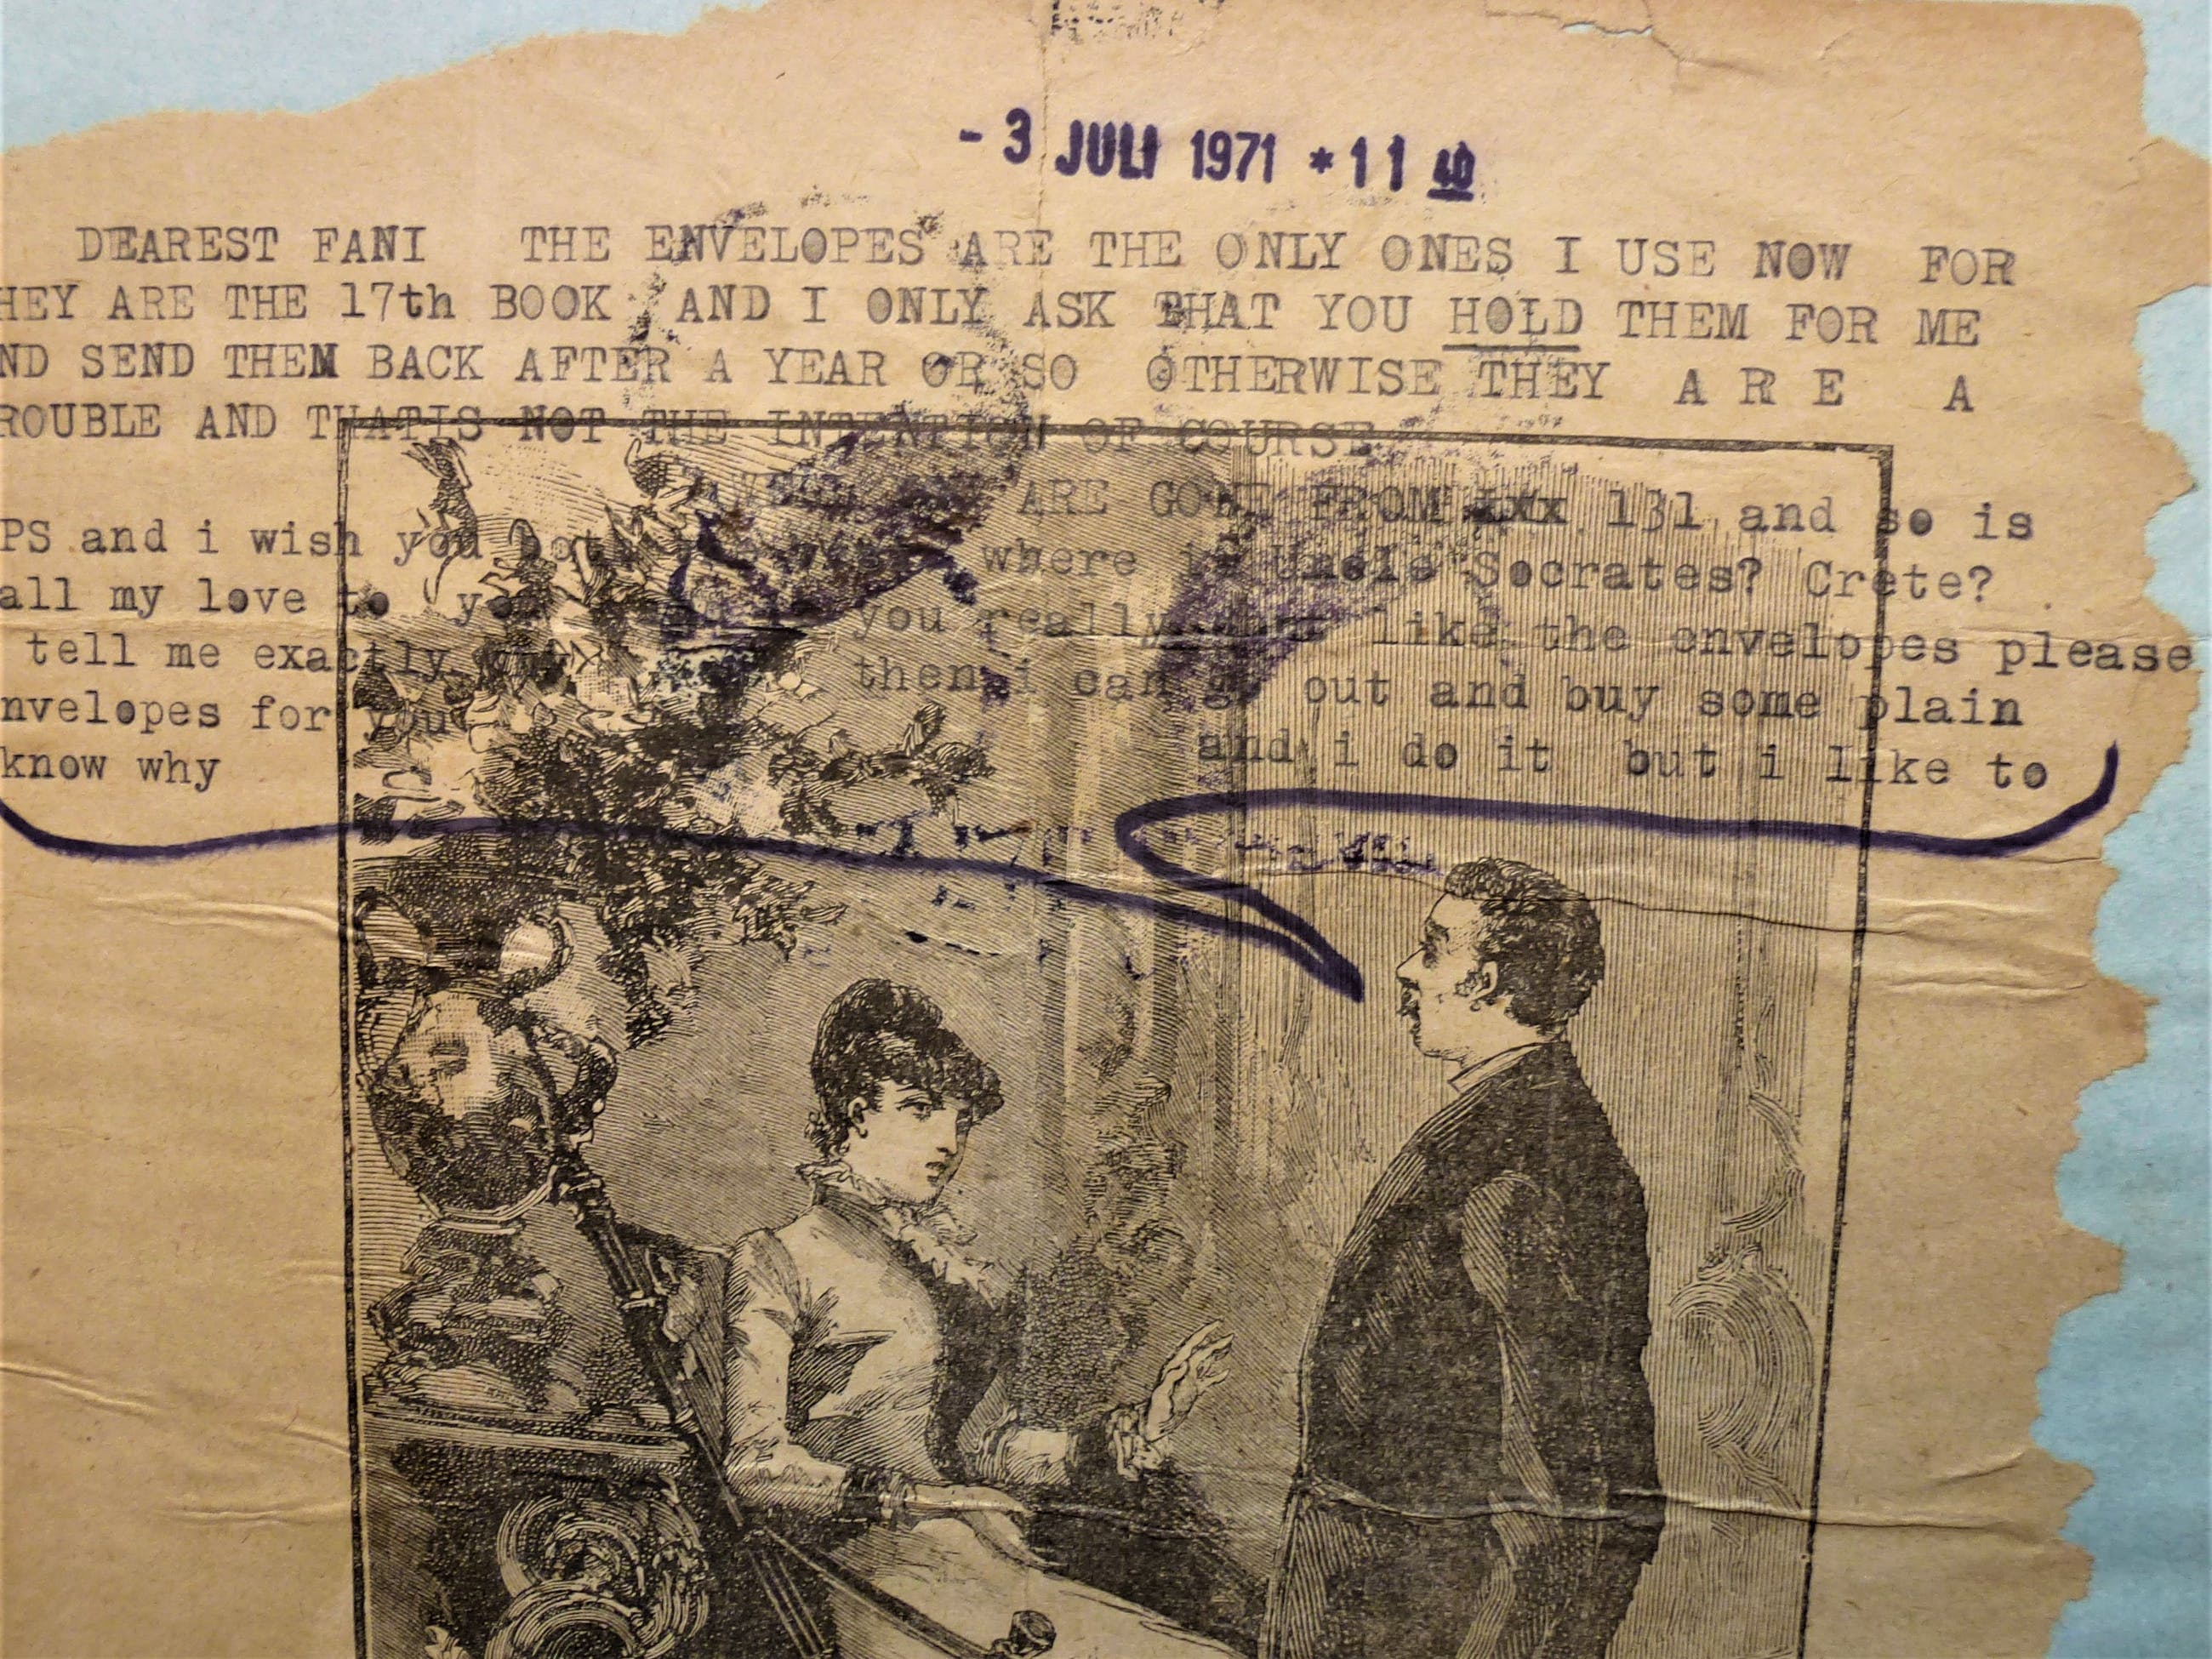 - 3 JULI 1971 * 11 40
DEAREST FANI THE ENVELOPES ARE THE ONLY ONES I USE NOW FOR
HEY ARE THE 17th BOOK AND I ONLY ASK THAT YOU HOLD THEM FOR ME
ND SEND THEM BACK AFTER A YEAR OR SO OTHERWISE THEY A R E A
ROUBLE AND THATIS NOT THE INTENTION OF COURSE
ARE GONE FROM xxx 131 and so is
PS and i wish you both where is Uncle Socrates? Crete?
all my love to you really like the envelopes please
tell me exactly then i can go out and buy some plain
nvelopes for you and i do it but i like to
know why